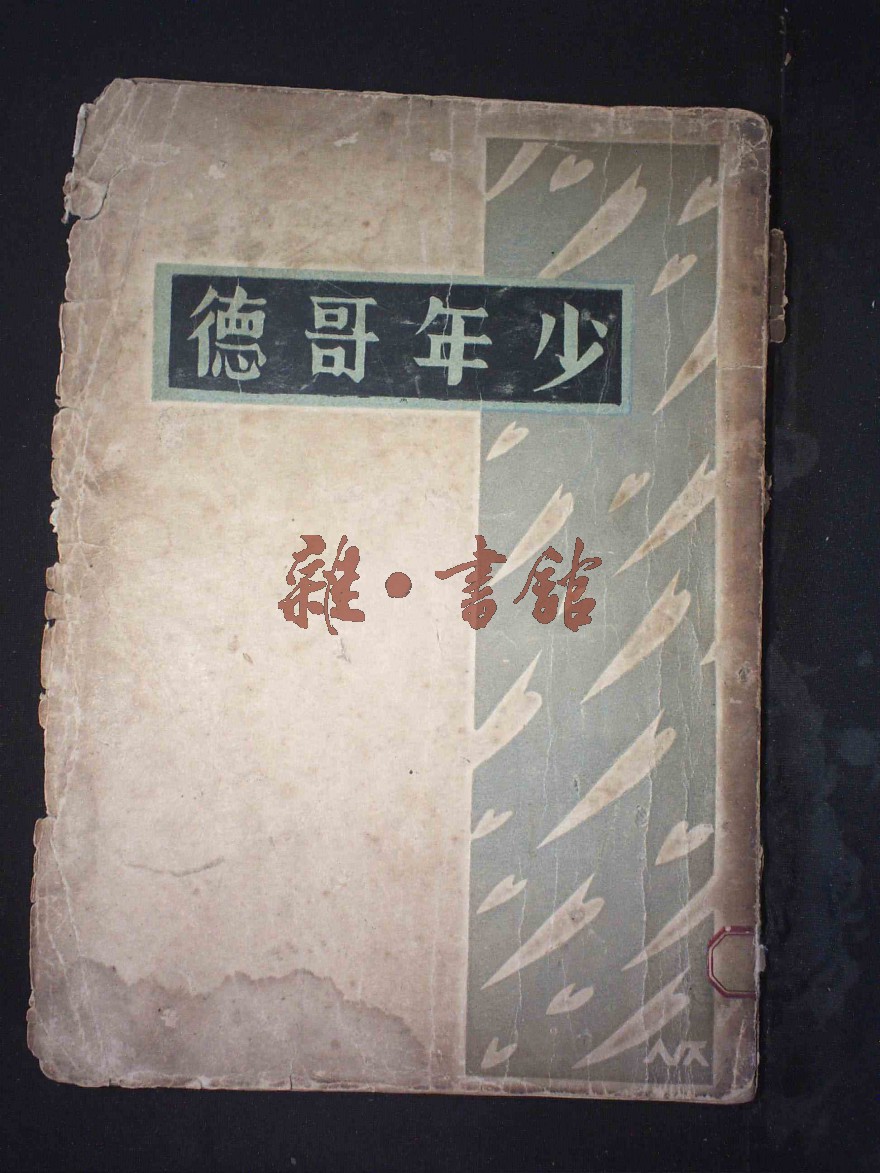 少年哥德
雜·書館